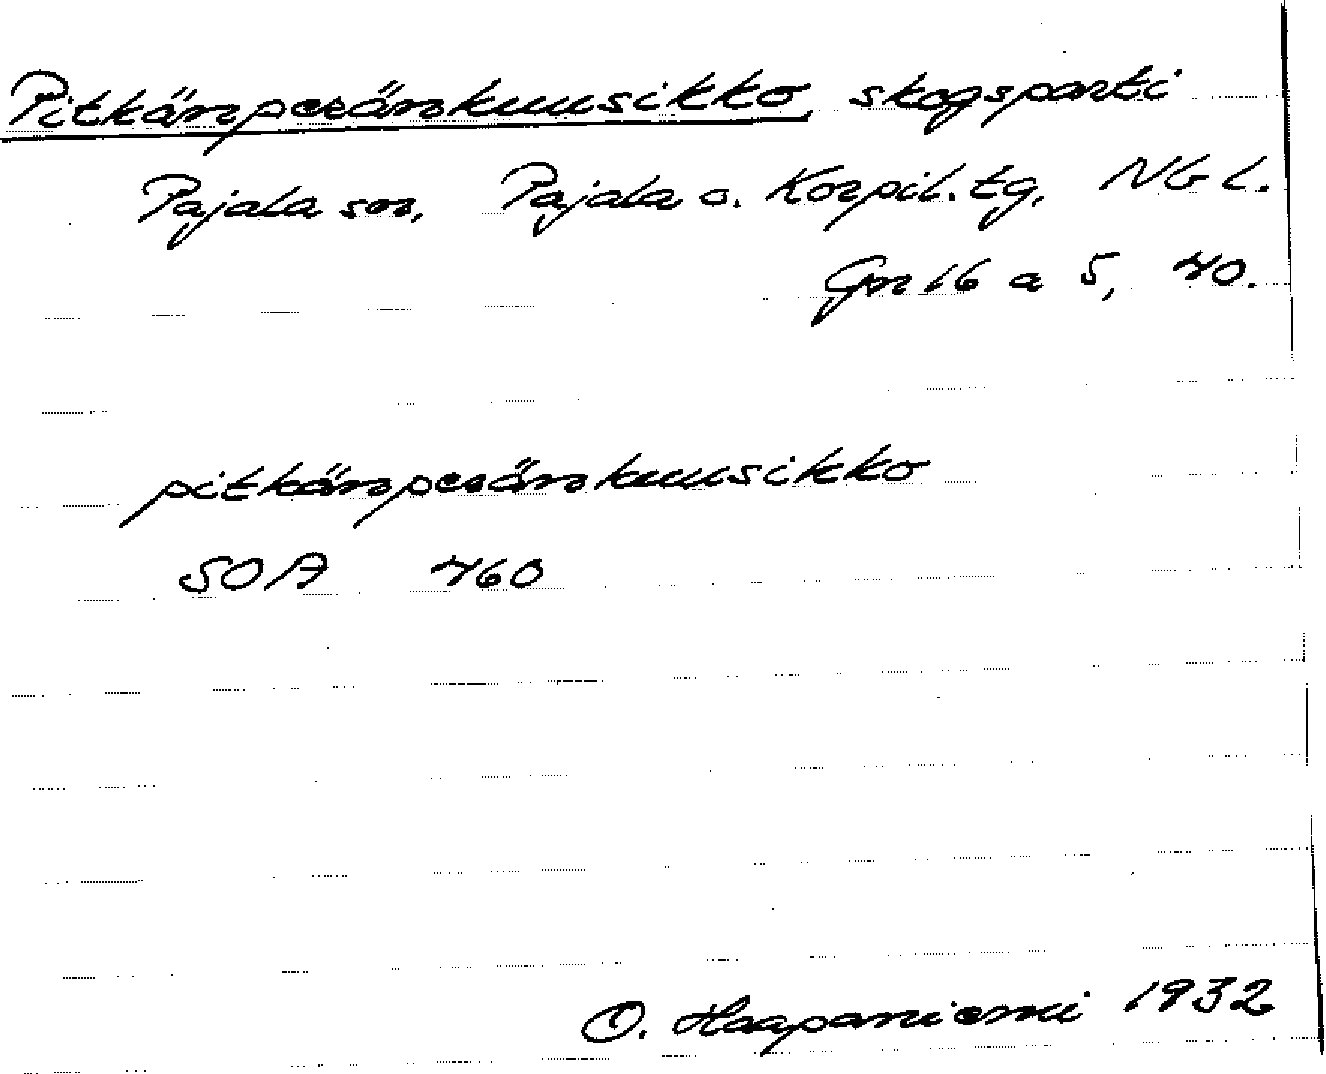 Pitkänperänkuusikko, skogsparti
Pajala sn, Pajala o. Korpil. tg, NB L.
Gn 16 a 5, 40.
pitkänperänkuusikko
SOA 460
O. Haapaniemi 1932